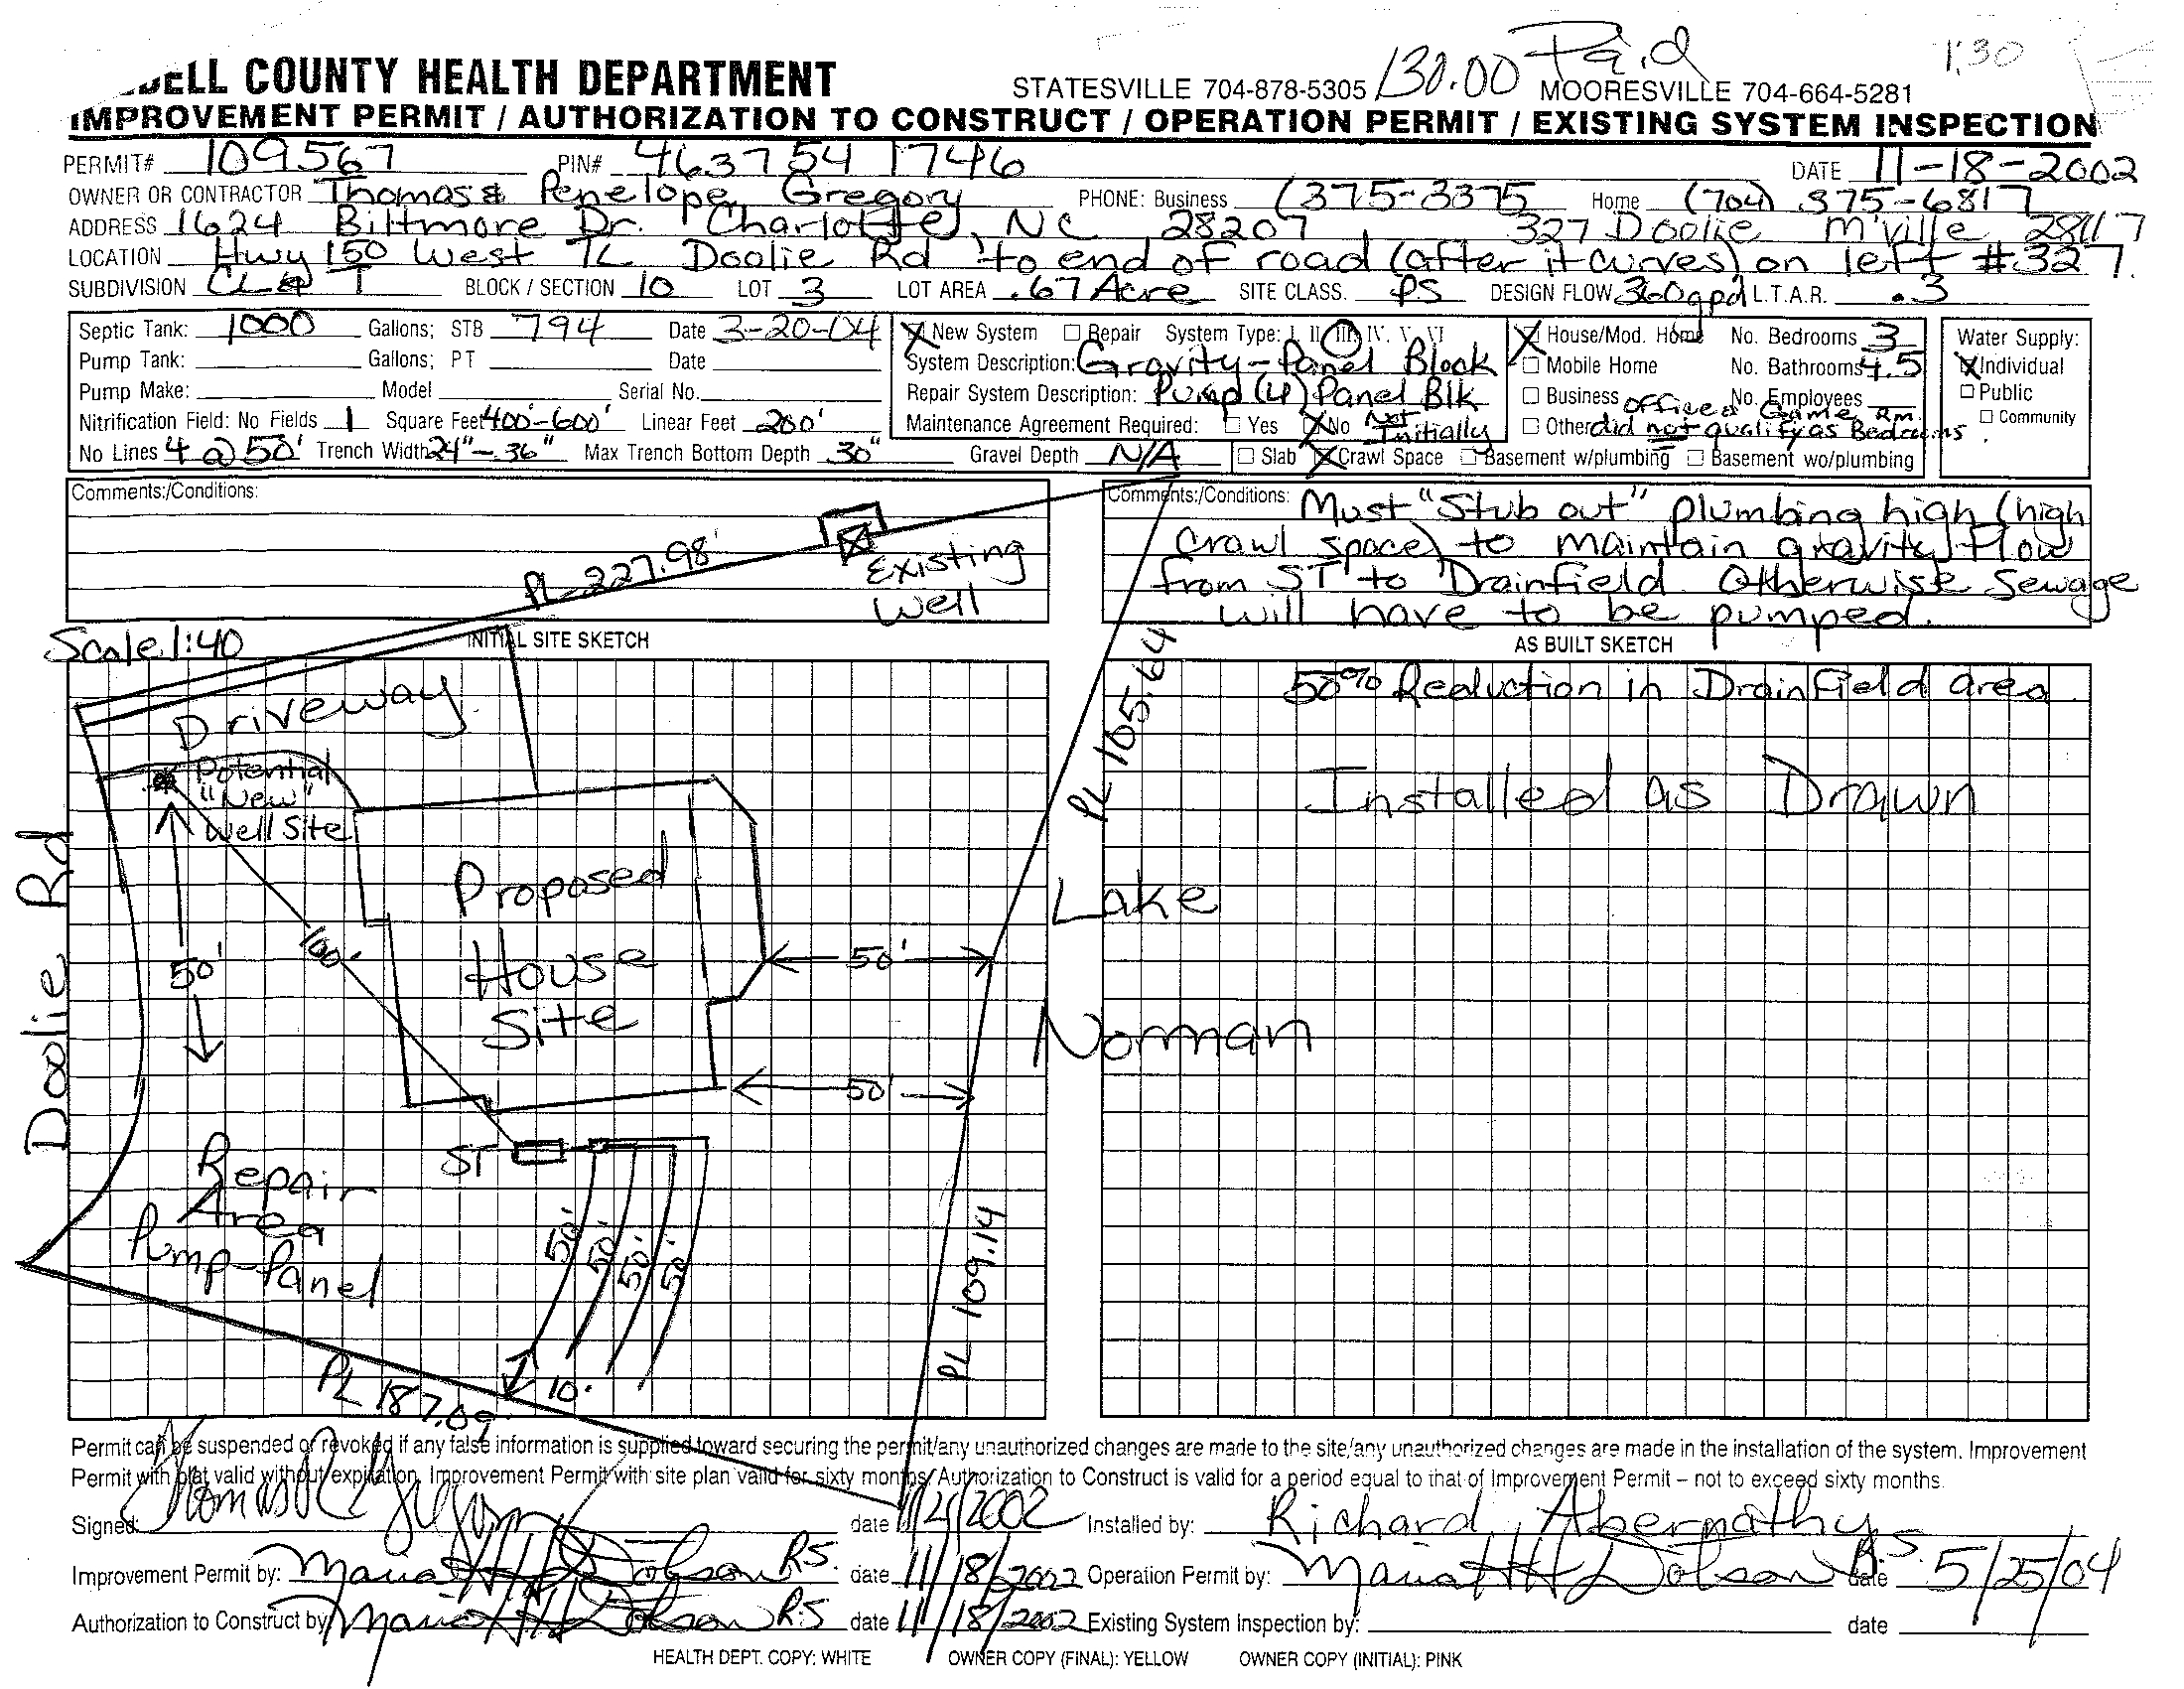 130.00 Paid
1:30
DELL COUNTY HEALTH DEPARTMENT STATESVILLE 704-878-5305 MOORESVILLE 704-664-5281
IMPROVEMENT PERMIT / AUTHORIZATION TO CONSTRUCT / OPERATION PERMIT / EXISTING SYSTEM INSPECTION
PERMIT# 109567 PIN# 4637 54 1746 DATE 11-18-2002
OWNER OR CONTRACTOR Thomas & Penelope Gregory PHONE: Business (375-3375 Home (704) 375-6817
ADDRESS 1624 Biltmore Dr. Charlotte, NC 28207 327 Doolie M'ville 28117
LOCATION Hwy 150 West TL Doolie Rd to end of road (after it curves) on left #327.
SUBDIVISION CL&T BLOCK / SECTION 10 LOT 3 LOT AREA .67 Acre SITE CLASS. PS DESIGN FLOW 360gpd L.T.A.R. .3
Septic Tank: 1000 Gallons; STB 794 Date 3-20-04
Pump Tank: Gallons; PT Date
Pump Make: Model Serial No.
Nitrification Field: No Fields 1 Square Feet 400'-600' Linear Feet 200'
No Lines 4 @ 50' Trench Width 24"-36" Max Trench Bottom Depth 30" Gravel Depth N/A
X New System Repair System Type: I, II, III, IV, V, VI
System Description: Gravity-Panel Block
Repair System Description: Pump (4) Panel Blk
Maintenance Agreement Required: Yes X No Not Initially
X House/Mod. Home No. Bedrooms 3
Mobile Home No. Bathrooms 4.5
Business No. Employees
Other Office & Game Rm did not qualify as Bedrooms.
Slab X Crawl Space Basement w/plumbing Basement wo/plumbing
Water Supply:
X Individual
Public
Community
Comments:/Conditions:
PL 227.98'
Existing
Well
Comments:/Conditions: Must "Stub out" plumbing high (high
crawl space) to maintain gravity flow
from ST to Drainfield. Otherwise Sewage
will have to be pumped.
Scale 1:40
INITIAL SITE SKETCH
AS BUILT SKETCH
Driveway
Potential
"New"
Well Site
50'
100'
Doolie Rd
Proposed
House
Site
50'
50'
PL 105.64
Lake
Norman
ST
50'
50'
50'
50'
10'
Repair
Area
Pump-Panel
PL 109.14
PL 187.09'
50% Reduction in Drainfield area
Installed as Drawn
Permit can be suspended or revoked if any false information is supplied toward securing the permit/any unauthorized changes are made to the site/any unauthorized changes are made in the installation of the system. Improvement
Permit with plat valid without expiration, Improvement Permit with site plan valid for sixty months/Authorization to Construct is valid for a period equal to that of Improvement Permit – not to exceed sixty months.
Signed: date Installed by: Richard Abernathy
Improvement Permit by: Maria H Dobson R.S. date 11/18/2002 Operation Permit by: Maria H Dobson R.S. date 5/25/04
Authorization to Construct by: Maria H Dobson R.S date 11/18/2002 Existing System Inspection by: date
HEALTH DEPT. COPY: WHITE OWNER COPY (FINAL): YELLOW OWNER COPY (INITIAL): PINK